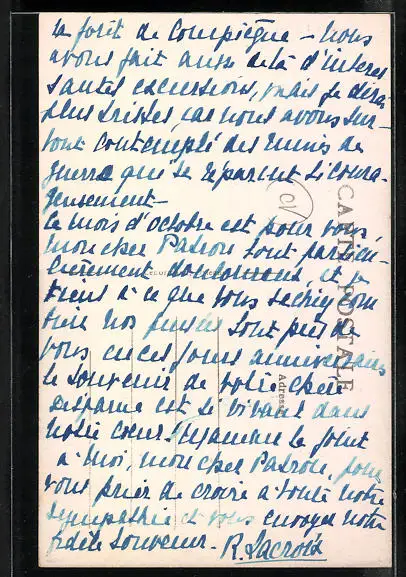 la forêt de Compiègne - Nous
avons fait aussi de là d'intéres
santes excursions, mais je dirai
plus tristes, car nous avons sur-
tout contemplé des ruines de
guerre que se réparent si coura-
geusement -
Le mois d'octobre est pour vous,
mon cher Patron tout particu-
lièrement douloureux, et je
tiens à ce que vous sachiez com
bien nos pensées sont près de
vous en ces jours anniversaires
le souvenir de votre chère
disparue est si vivant dans
notre cœur. Suzanne se joint
à moi, mon cher Patron, pour
vous prier de croire à toute notre
sympathie et vous envoyer notre
fidèle souvenir - R. Lacroix
CARTE POSTALE
Adresse